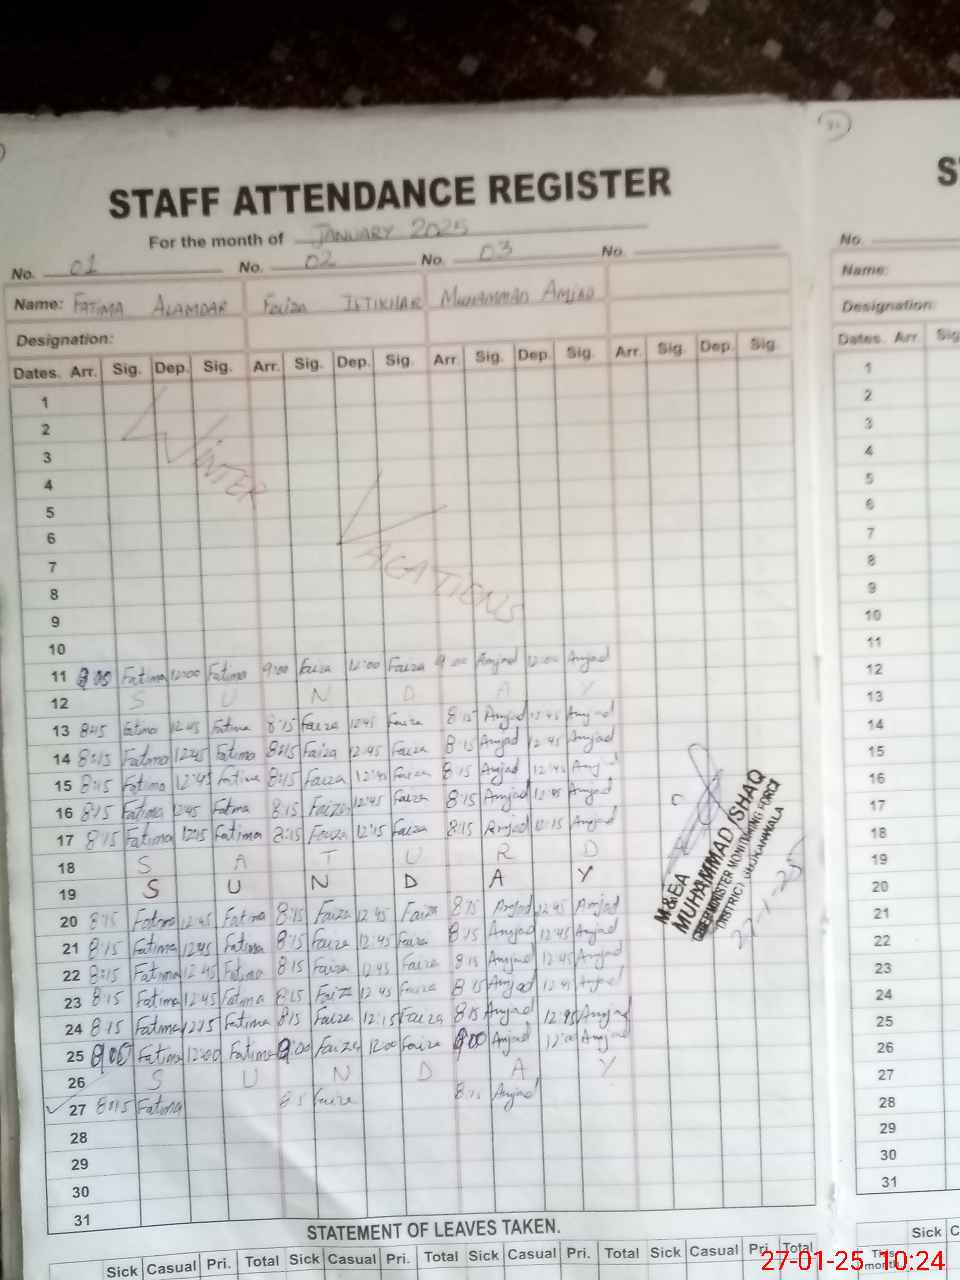 STAFF ATTENDANCE REGISTER
For the month of JANUARY 2025
No. 01 No. 02 No. 03 No.
Name: FATIMA ALAMDAR Faiza IFTIKHAR MUHAMMAD AMJAD
Designation:
Dates. Arr. Sig. Dep. Sig. Arr. Sig. Dep. Sig. Arr. Sig. Dep. Sig. Arr. Sig. Dep. Sig.
1
2
3
4
5
6
7
8
9
10
WINTER
VACATIONS
11 9:00 Fatima 12:00 Fatima 9:00 Faiza 12:00 Faiza 9:00 Amjad 12:00 Amjad
12 S U N D A Y
13 8:15 Fatima 12:45 Fatima 8:15 Faiza 12:45 Faiza 8:15 Amjad 12:45 Amjad
14 8:15 Fatima 12:45 Fatima 8:15 Faiza 12:45 Faiza 8:15 Amjad 12:45 Amjad
15 8:15 Fatima 12:45 Fatima 8:15 Faiza 12:45 Faiza 8:15 Amjad 12:45 Amjad
16 8:15 Fatima 12:45 Fatima 8:15 Faiza 12:45 Faiza 8:15 Amjad 12:45 Amjad
17 8:15 Fatima 12:15 Fatima 8:15 Faiza 12:15 Faiza 8:15 Amjad 12:15 Amjad
18 S A T U R D
19 S U N D A Y
20 8:15 Fatima 12:45 Fatima 8:15 Faiza 12:45 Faiza 8:15 Amjad 12:45 Amjad
21 8:15 Fatima 12:45 Fatima 8:15 Faiza 12:45 Faiza 8:15 Amjad 12:45 Amjad
22 8:15 Fatima 12:45 Fatima 8:15 Faiza 12:45 Faiza 8:15 Amjad 12:45 Amjad
23 8:15 Fatima 12:45 Fatima 8:15 Faiza 12:45 Faiza 8:15 Amjad 12:45 Amjad
24 8:15 Fatima 12:15 Fatima 8:15 Faiza 12:15 Faiza 8:15 Amjad 12:15 Amjad
25 9:00 Fatima 12:00 Fatima 9:00 Faiza 12:00 Faiza 9:00 Amjad 12:00 Amjad
26 S U N D A Y
27 8:15 Fatima 8:15 Faiza 8:15 Amjad
28
29
30
31
M&EA
MUHAMMAD ISHAQ
CHIEF MINISTER MONITORING FORCE
DISTRICT
27-1-25
STATEMENT OF LEAVES TAKEN.
Sick Casual Pri. Total Sick Casual Pri. Total Sick Casual Pri. Total Sick Casual Pri. Total
S
No.
Name:
Designation:
Dates. Arr. Sig
1
2
3
4
5
6
7
8
9
10
11
12
13
14
15
16
17
18
19
20
21
22
23
24
25
26
27
28
29
30
31
Sick C
This month
27-01-25 10:24